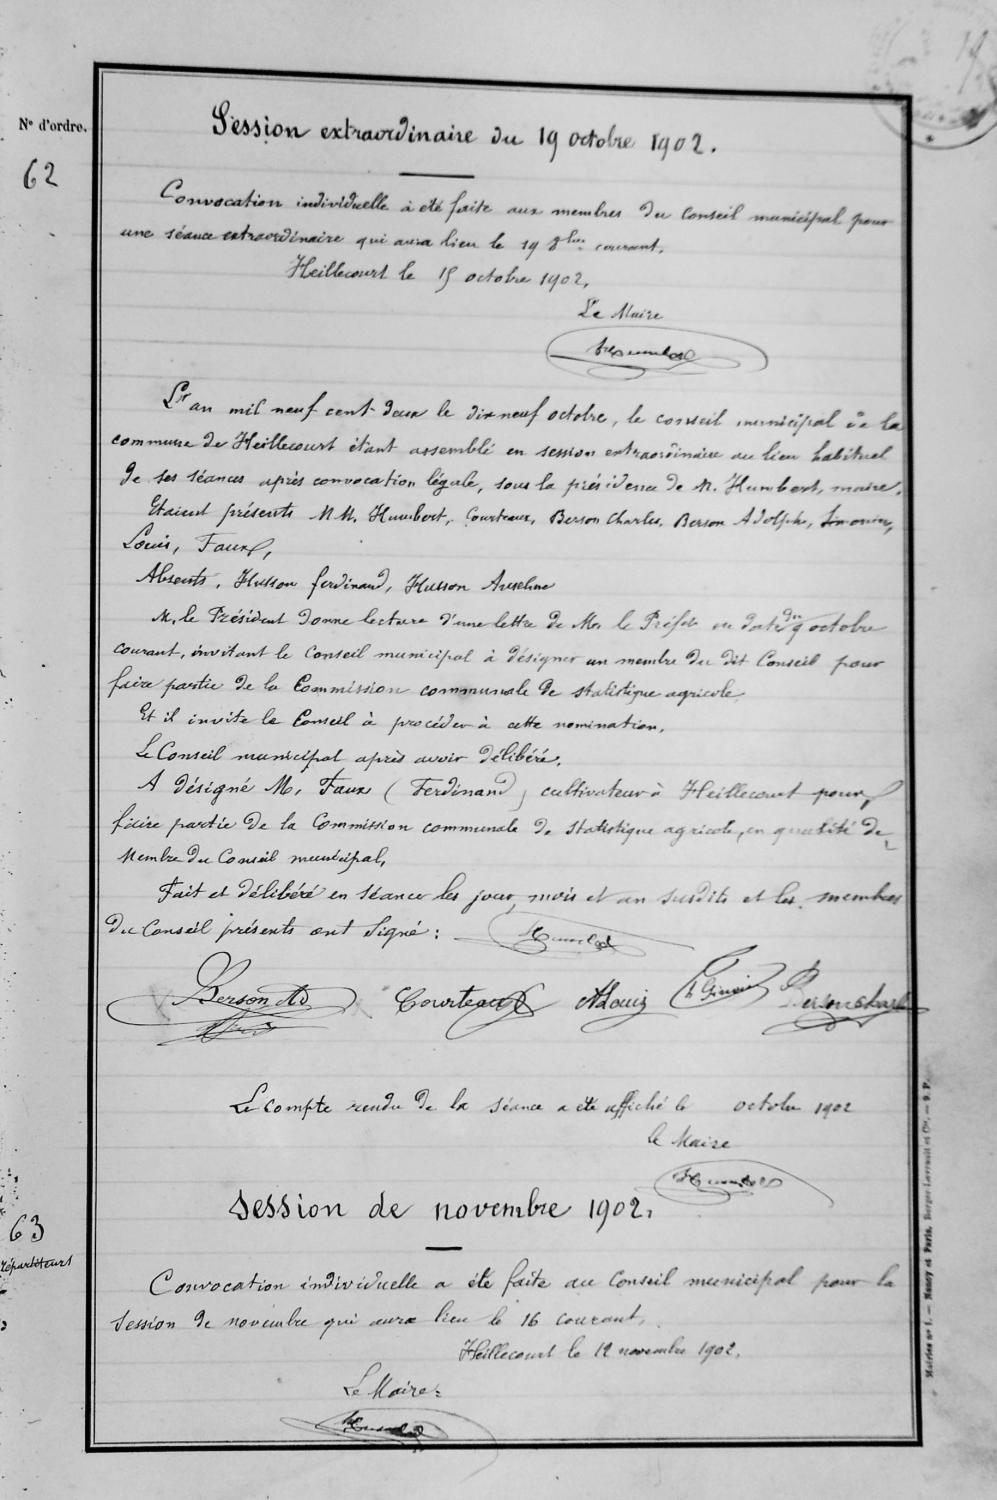 Nº d'ordre.
62
Session extraordinaire du 19 octobre 1902.
Convocation individuelle a été faite aux membres du Conseil municipal pour
une séance extraordinaire qui aura lieu le 19 8bre courant.
Heillecourt le 15 octobre 1902.
Le Maire
Humbert
L'an mil neuf cent deux le dix neuf octobre, le conseil municipal de la
commune de Heillecourt étant assemblé en session extraordinaire au lieu habituel
de ses séances après convocation légale, sous la présidence de M. Humbert, maire.
Etaient présents MM. Humbert, Courteaux, Berson Charles, Berson Adolphe, Simonin,
Louis, Faux,
Absents, Husson ferdinand, Husson Anselme
M. le Président donne lecture d'une lettre de Mr. le Préfet en date du 9 octobre
courant, invitant le Conseil municipal à désigner un membre du dit Conseil pour
faire partie de la Commission communale de statistique agricole
Et il invite le Conseil à procéder à cette nomination.
Le Conseil municipal après avoir délibéré.
A désigné M. Faux (Ferdinand) cultivateur à Heillecourt pour
faire partie de la Commission communale de statistique agricole, en qualité de
Membre du Conseil municipal,
Fait et délibéré en séance les jour, mois et an susdits et les membres
du Conseil présents ont signé : Humbert
Berson Ad Courteaux A Louis Berson Charl
Le compte rendu de la séance a été affiché le octobre 1902
le Maire
Humbert
63
répartiteurs
Session de novembre 1902.
Convocation individuelle a été faite au Conseil municipal pour la
session de novembre qui aura lieu le 16 courant.
Heillecourt le 12 novembre 1902.
Le Maire
Humbert
Mairies nº 1. — Nancy et Paris, Berger-Levrault et Cie. — S. P.